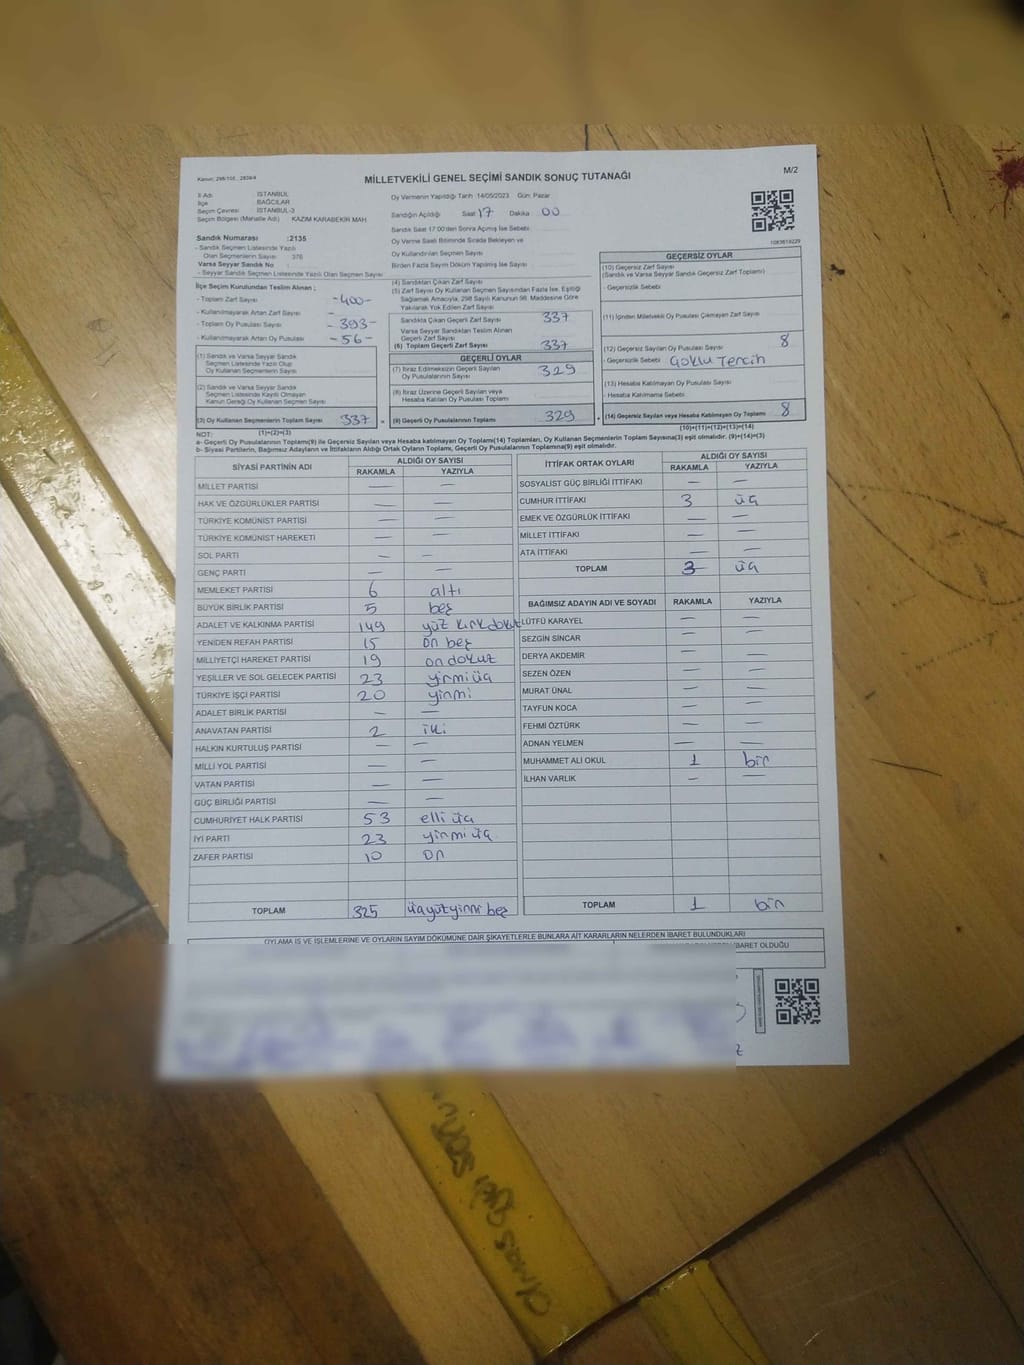 Kanun: 298/105 , 2839/4
MİLLETVEKİLİ GENEL SEÇİMİ SANDIK SONUÇ TUTANAĞI
M/2
İl Adı İSTANBUL
İlçe BAĞCILAR
Seçim Çevresi İSTANBUL-3
Seçim Bölgesi (Mahalle Adı) KAZIM KARABEKİR MAH
Sandık Numarası :2135
- Sandık Seçmen Listesinde Yazılı
Olan Seçmenlerin Sayısı 376
Varsa Seyyar Sandık No :
- Seyyar Sandık Seçmen Listesinde Yazılı Olan Seçmen Sayısı
Oy Vermenin Yapıldığı Tarih 14/05/2023 Gün: Pazar
Sandığın Açıldığı Saat 17 Dakika 00
Sandık Saat 17:00'den Sonra Açılmış İse Sebebi
Oy Verme Saati Bitiminde Sırada Bekleyen ve
Oy Kullandırılan Seçmen Sayısı
Birden Fazla Sayım Döküm Yapılmış İse Sayısı
İlçe Seçim Kurulundan Teslim Alınan ;
- Toplam Zarf Sayısı -400-
- Kullanılmayarak Artan Zarf Sayısı -
- Toplam Oy Pusulası Sayısı -393-
- Kullanılmayarak Artan Oy Pusulası -56-
(1) Sandık ve Varsa Seyyar Sandık
Seçmen Listesinde Yazılı Olup
Oy Kullanan Seçmenlerin Sayısı
(2) Sandık ve Varsa Seyyar Sandık
Seçmen Listesinde Kayıtlı Olmayan
Kanun Gereği Oy Kullanan Seçmen Sayısı
(3) Oy Kullanan Seçmenlerin Toplam Sayısı 337
(1)+(2)=(3)
(4) Sandıktan Çıkan Zarf Sayısı
(5) Zarf Sayısı Oy Kullanan Seçmen Sayısından Fazla İse, Eşitliği
Sağlamak Amacıyla, 298 Sayılı Kanunun 98. Maddesine Göre
Yakılarak Yok Edilen Zarf Sayısı
Sandıkta Çıkan Geçerli Zarf Sayısı 337
Varsa Seyyar Sandıktan Teslim Alınan
Geçerli Zarf Sayısı
(6) Toplam Geçerli Zarf Sayısı 337
GEÇERLİ OYLAR
(7) İtiraz Edilmeksizin Geçerli Sayılan
Oy Pusulalarının Sayısı 329
(8) İtiraz Üzerine Geçerli Sayılan veya
Hesaba Katılan Oy Pusulaları Toplamı
= (9) Geçerli Oy Pusulalarının Toplamı 329
GEÇERSİZ OYLAR
(10) Geçersiz Zarf Sayısı
(Sandık ve Varsa Seyyar Sandık Geçersiz Zarf Toplamı)
- Geçersizlik Sebebi
(11) İçinden Milletvekili Oy Pusulası Çıkmayan Zarf Sayısı
(12) Geçersiz Sayılan Oy Pusulası Sayısı 8
- Geçersizlik Sebebi Çoklu Tercih
(13) Hesaba Katılmayan Oy Pusulası Sayısı
- Hesaba Katılmama Sebebi
+ (14) Geçersiz Sayılan veya Hesaba Katılmayan Oy Toplamı 8
(10)+(11)+(12)+(13)=(14)
NOT:
a- Geçerli Oy Pusulalarının Toplamı(9) ile Geçersiz Sayılan veya Hesaba katılmayan Oy Toplam(14) Toplamları, Oy Kullanan Seçmenlerin Toplam Sayısına(3) eşit olmalıdır. (9)+(14)=(3)
b- Siyasi Partilerin, Bağımsız Adayların ve İttifakların Aldığı Ortak Oyların Toplamı, Geçerli Oy Pusulalarının Toplamına(9) eşit olmalıdır.
SİYASİ PARTİNİN ADI ALDIĞI OY SAYISI
RAKAMLA YAZIYLA
MİLLET PARTİSİ — —
HAK VE ÖZGÜRLÜKLER PARTİSİ — —
TÜRKİYE KOMÜNİST PARTİSİ — —
TÜRKİYE KOMÜNİST HAREKETİ — —
SOL PARTİ — —
GENÇ PARTİ — —
MEMLEKET PARTİSİ 6 altı
BÜYÜK BİRLİK PARTİSİ 5 beş
ADALET VE KALKINMA PARTİSİ 149 yüz kırk dokuz
YENİDEN REFAH PARTİSİ 15 on beş
MİLLİYETÇİ HAREKET PARTİSİ 19 on dokuz
YEŞİLLER VE SOL GELECEK PARTİSİ 23 yirmi üç
TÜRKİYE İŞÇİ PARTİSİ 20 yirmi
ADALET BİRLİK PARTİSİ — —
ANAVATAN PARTİSİ 2 iki
HALKIN KURTULUŞ PARTİSİ — —
MİLLİ YOL PARTİSİ — —
VATAN PARTİSİ — —
GÜÇ BİRLİĞİ PARTİSİ — —
CUMHURİYET HALK PARTİSİ 53 elli üç
İYİ PARTİ 23 yirmi üç
ZAFER PARTİSİ 10 on
TOPLAM 325 üçyüzyirmi beş
İTTİFAK ORTAK OYLARI ALDIĞI OY SAYISI
RAKAMLA YAZIYLA
SOSYALİST GÜÇ BİRLİĞİ İTTİFAKI — —
CUMHUR İTTİFAKI 3 üç
EMEK VE ÖZGÜRLÜK İTTİFAKI — —
MİLLET İTTİFAKI — —
ATA İTTİFAKI — —
TOPLAM 3 üç
BAĞIMSIZ ADAYIN ADI VE SOYADI RAKAMLA YAZIYLA
LÜTFÜ KARAYEL — —
SEZGİN SİNCAR — —
DERYA AKDEMİR — —
SEZEN ÖZEN — —
MURAT ÜNAL — —
TAYFUN KOCA — —
FEHMİ ÖZTÜRK — —
ADNAN YELMEN — —
MUHAMMET ALİ OKUL 1 bir
İLHAN VARLIK — —
TOPLAM 1 bir
OYLAMA İŞ VE İŞLEMLERİNE VE OYLARIN SAYIM DÖKÜMÜNE DAİR ŞİKAYETLERLE BUNLARA AİT KARARLARIN NELERDEN İBARET BULUNDUKLARI
İBARET OLDUĞU